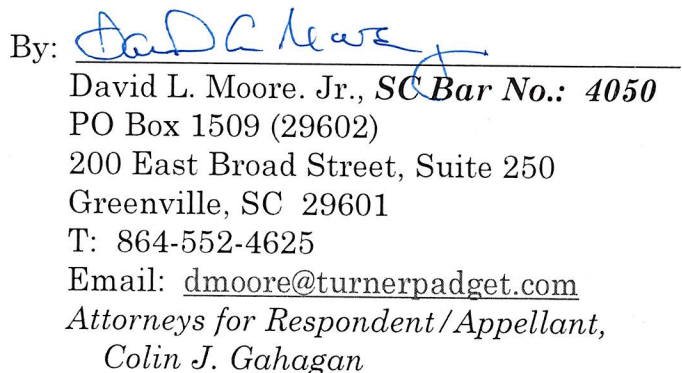 By: David L Moore Jr
David L. Moore. Jr., SC Bar No.: 4050
PO Box 1509 (29602)
200 East Broad Street, Suite 250
Greenville, SC 29601
T: 864-552-4625
Email: dmoore@turnerpadget.com
Attorneys for Respondent/Appellant,
Colin J. Gahagan